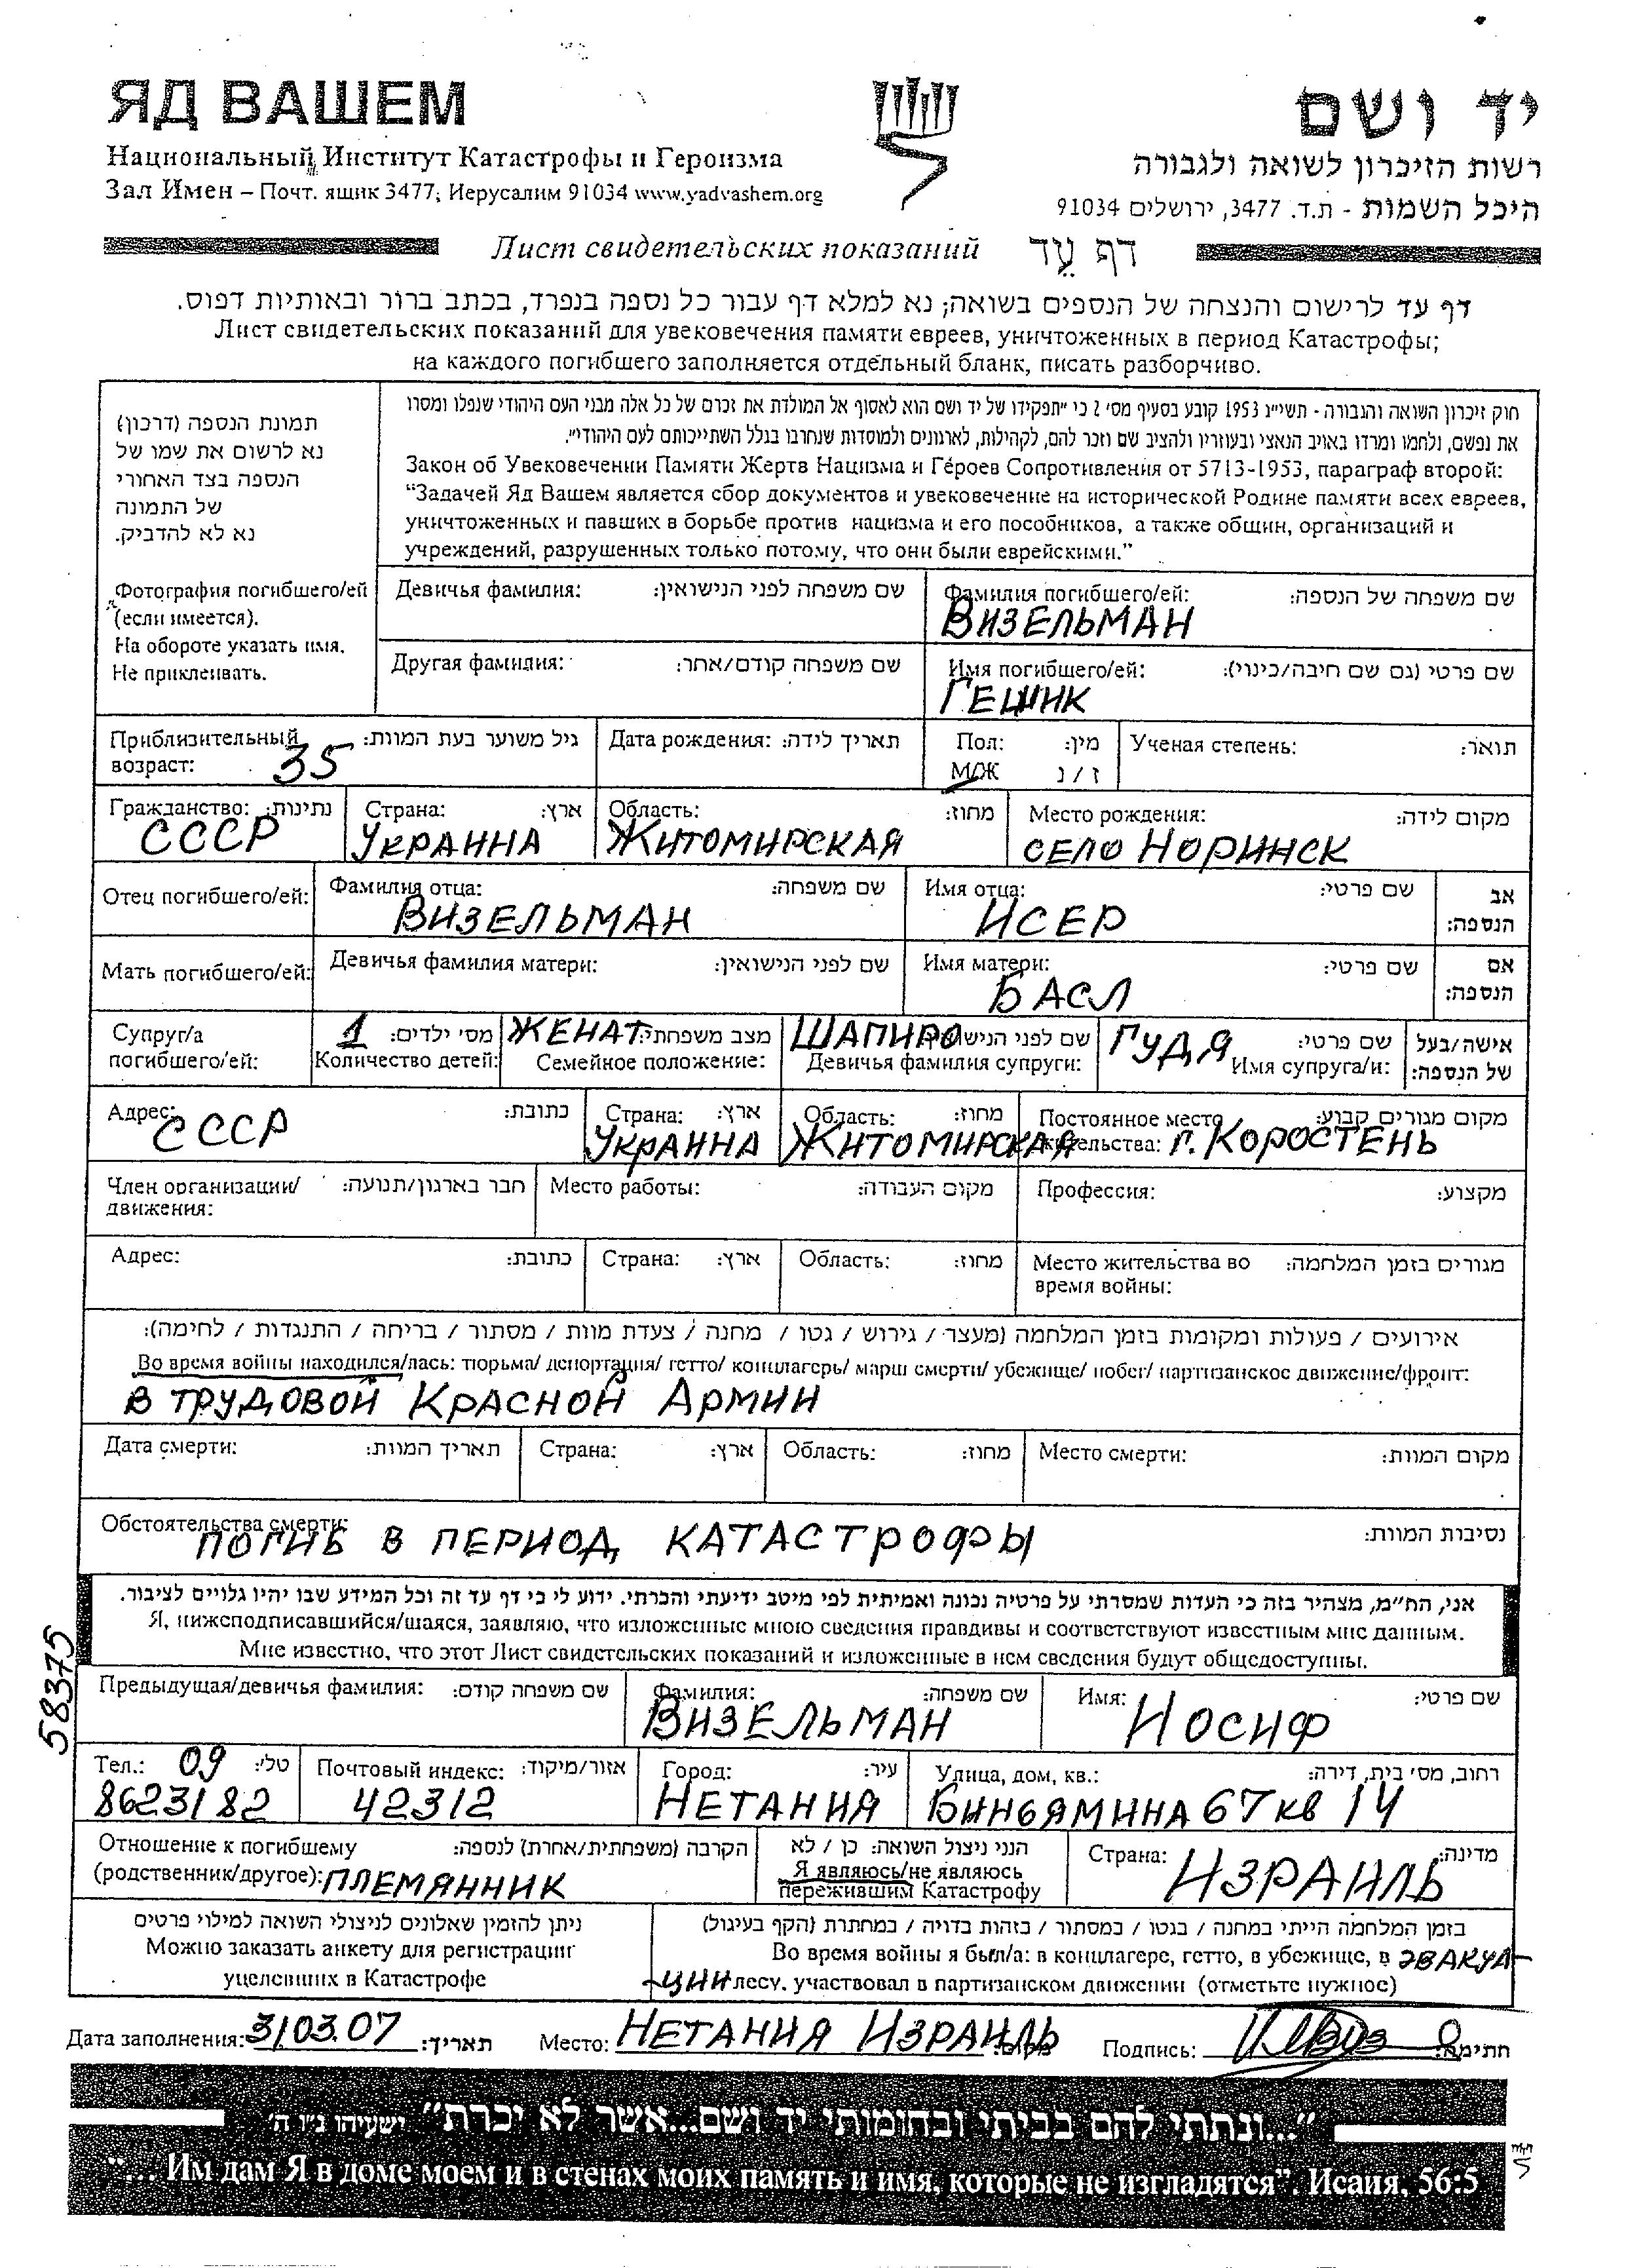 ЯД ВАШЕМ
יד ושם
Национальный Институт Катастрофы и Героизма
רשות הזיכרון לשואה ולגבורה
Зал Имен – Почт. ящик 3477, Иерусалим 91034 www.yadvashem.org
היכל השמות - ת.ד. 3477, ירושלים 91034
Лист свидетельских показаний דף עֵד
דף עד לרישום והנצחה של הנספים בשואה; נא למלא דף עבור כל נספה בנפרד, בכתב ברור ובאותיות דפוס.
Лист свидетельских показаний для увековечения памяти евреев, уничтоженных в период Катастрофы;
на каждого погибшего заполняется отдельный бланк, писать разборчиво.
תמונת הנספה (דרכון)
נא לרשום את שמו של
הנספה בצד האחורי
של התמונה
נא לא להדביק.
Фотография погибшего/ей
(если имеется).
На обороте указать имя.
Не приклеивать.
חוק זיכרון השואה והגבורה - תשי"ג 1953 קובע בסעיף מס' 2 כי "תפקידו של יד ושם הוא לאסוף אל המולדת את זכרם של כל אלה מבני העם היהודי שנפלו ומסרו
את נפשם, נלחמו ומרדו באויב הנאצי ובעוזריו ולהציב שם וזכר להם, לקהילות, לארגונים ולמוסדות שנחרבו בגלל השתייכותם לעם היהודי".
Закон об Увековечении Памяти Жертв Нацизма и Героев Сопротивления от 5713-1953, параграф второй:
“Задачей Яд Вашем является сбор документов и увековечение на исторической Родине памяти всех евреев,
уничтоженных и павших в борьбе против нацизма и его пособников, а также общин, организаций и
учреждений, разрушенных только потому, что они были еврейскими.”
Девичья фамилия: שם משפחה לפני הנישואין: Фамилия погибшего/ей: שם משפחה של הנספה:
ВИЗЕЛЬМАН
Другая фамилия: שם משפחה קודם/אחר: Имя погибшего/ей: שם פרטי (גם שם חיבה/כינוי):
ГЕШИК
Приблизительный возраст: גיל משוער בעת המוות: 35 Дата рождения: תאריך לידה: Пол: מין: М/Ж ז / נ Ученая степень: תואר:
Гражданство: נתינות: Страна: ארץ: Область: מחוז: Место рождения: מקום לידה:
СССР УКРАИНА ЖИТОМИРСКАЯ СЕЛО НОРИНСК
Отец погибшего/ей: Фамилия отца: שם משפחה: Имя отца: שם פרטי: אב הנספה:
ВИЗЕЛЬМАН ИСЕР
Мать погибшего/ей: Девичья фамилия матери: שם לפני הנישואין: Имя матери: שם פרטי: אם הנספה:
БАСЛ
Супруг/а погибшего/ей: 1 מס' ילדים: ЖЕНАТ מצב משפחתי: ШАПИРО שם לפני הנישואין ГУДЯ שם פרטי: אישה/בעל של הנספה:
Количество детей: Семейное положение: Девичья фамилия супруги: Имя супруга/и:
Адрес: כתובת: Страна: ארץ: Область: מחוז: Постоянное место жительства: מקום מגורים קבוע:
СССР УКРАИНА ЖИТОМИРСКАЯ Г. КОРОСТЕНЬ
Член организации/движения: חבר בארגון/תנועה: Место работы: מקום העבודה: Профессия: מקצוע:
Адрес: כתובת: Страна: ארץ: Область: מחוז: Место жительства во время войны: מגורים בזמן המלחמה:
אירועים / פעולות ומקומות בזמן המלחמה (מעצר / גירוש / גטו / מחנה / צעדת מוות / מסתור / בריחה / התנגדות / לחימה):
Во время войны находился/лась: тюрьма/ депортация/ гетто/ концлагерь/ марш смерти/ убежище/ побег/ партизанское движение/фронт:
В ТРУДОВОЙ КРАСНОЙ АРМИИ
Дата смерти: תאריך המוות: Страна: ארץ: Область: מחוז: Место смерти: מקום המוות:
Обстоятельства смерти: נסיבות המוות:
ПОГИБ В ПЕРИОД КАТАСТРОФЫ
אני, הח"מ, מצהיר בזה כי העדות שמסרתי על פרטיה נכונה ואמיתית לפי מיטב ידיעתי והכרתי. ידוע לי כי דף עד זה וכל המידע שבו יהיו גלויים לציבור.
Я, нижеподписавшийся/шаяся, заявляю, что изложенные мною сведения правдивы и соответствуют известным мне данным.
Мне известно, что этот Лист свидетельских показаний и изложенные в нем сведения будут общедоступны.
58375
Предыдущая/девичья фамилия: שם משפחה קודם: Фамилия: שם משפחה: Имя: שם פרטי:
ВИЗЕЛЬМАН ИОСИФ
Тел.: 09 טל': Почтовый индекс: אזור/מיקוד: Город: עיר: Улица, дом, кв.: רחוב, מס' בית, דירה:
8623182 42312 НЕТАНИЯ БИНЬЯМИНА 67 кв 14
Отношение к погибшему הקרבה (משפחתית/אחרת) לנספה: הנני ניצול השואה: כן / לא Страна: מדינה:
(родственник/другое): ПЛЕМЯННИК Я являюсь/не являюсь пережившим Катастрофу ИЗРАИЛЬ
ניתן להזמין שאלונים לניצולי השואה למילוי פרטים
Можно заказать анкету для регистрации
уцелевших в Катастрофе
בזמן המלחמה הייתי במחנה / בגטו / במסתור / בזהות בדויה / במחתרת (הקף בעיגול)
Во время войны я был/а: в концлагере, гетто, в убежище, в ЭВАКУА-
ЦИИ лесу, участвовал в партизанском движении (отметьте нужное)
Дата заполнения: 31.03.07 תאריך: Место: НЕТАНИЯ ИЗРАИЛЬ Подпись: חתימה:
"...ונתתי להם בביתי ובחומותי יד ושם...אשר לא יכרת" ישעיהו נ"ו ה'
“... Им дам Я в доме моем и в стенах моих память и имя, которые не изгладятся”. Исаия, 56:5